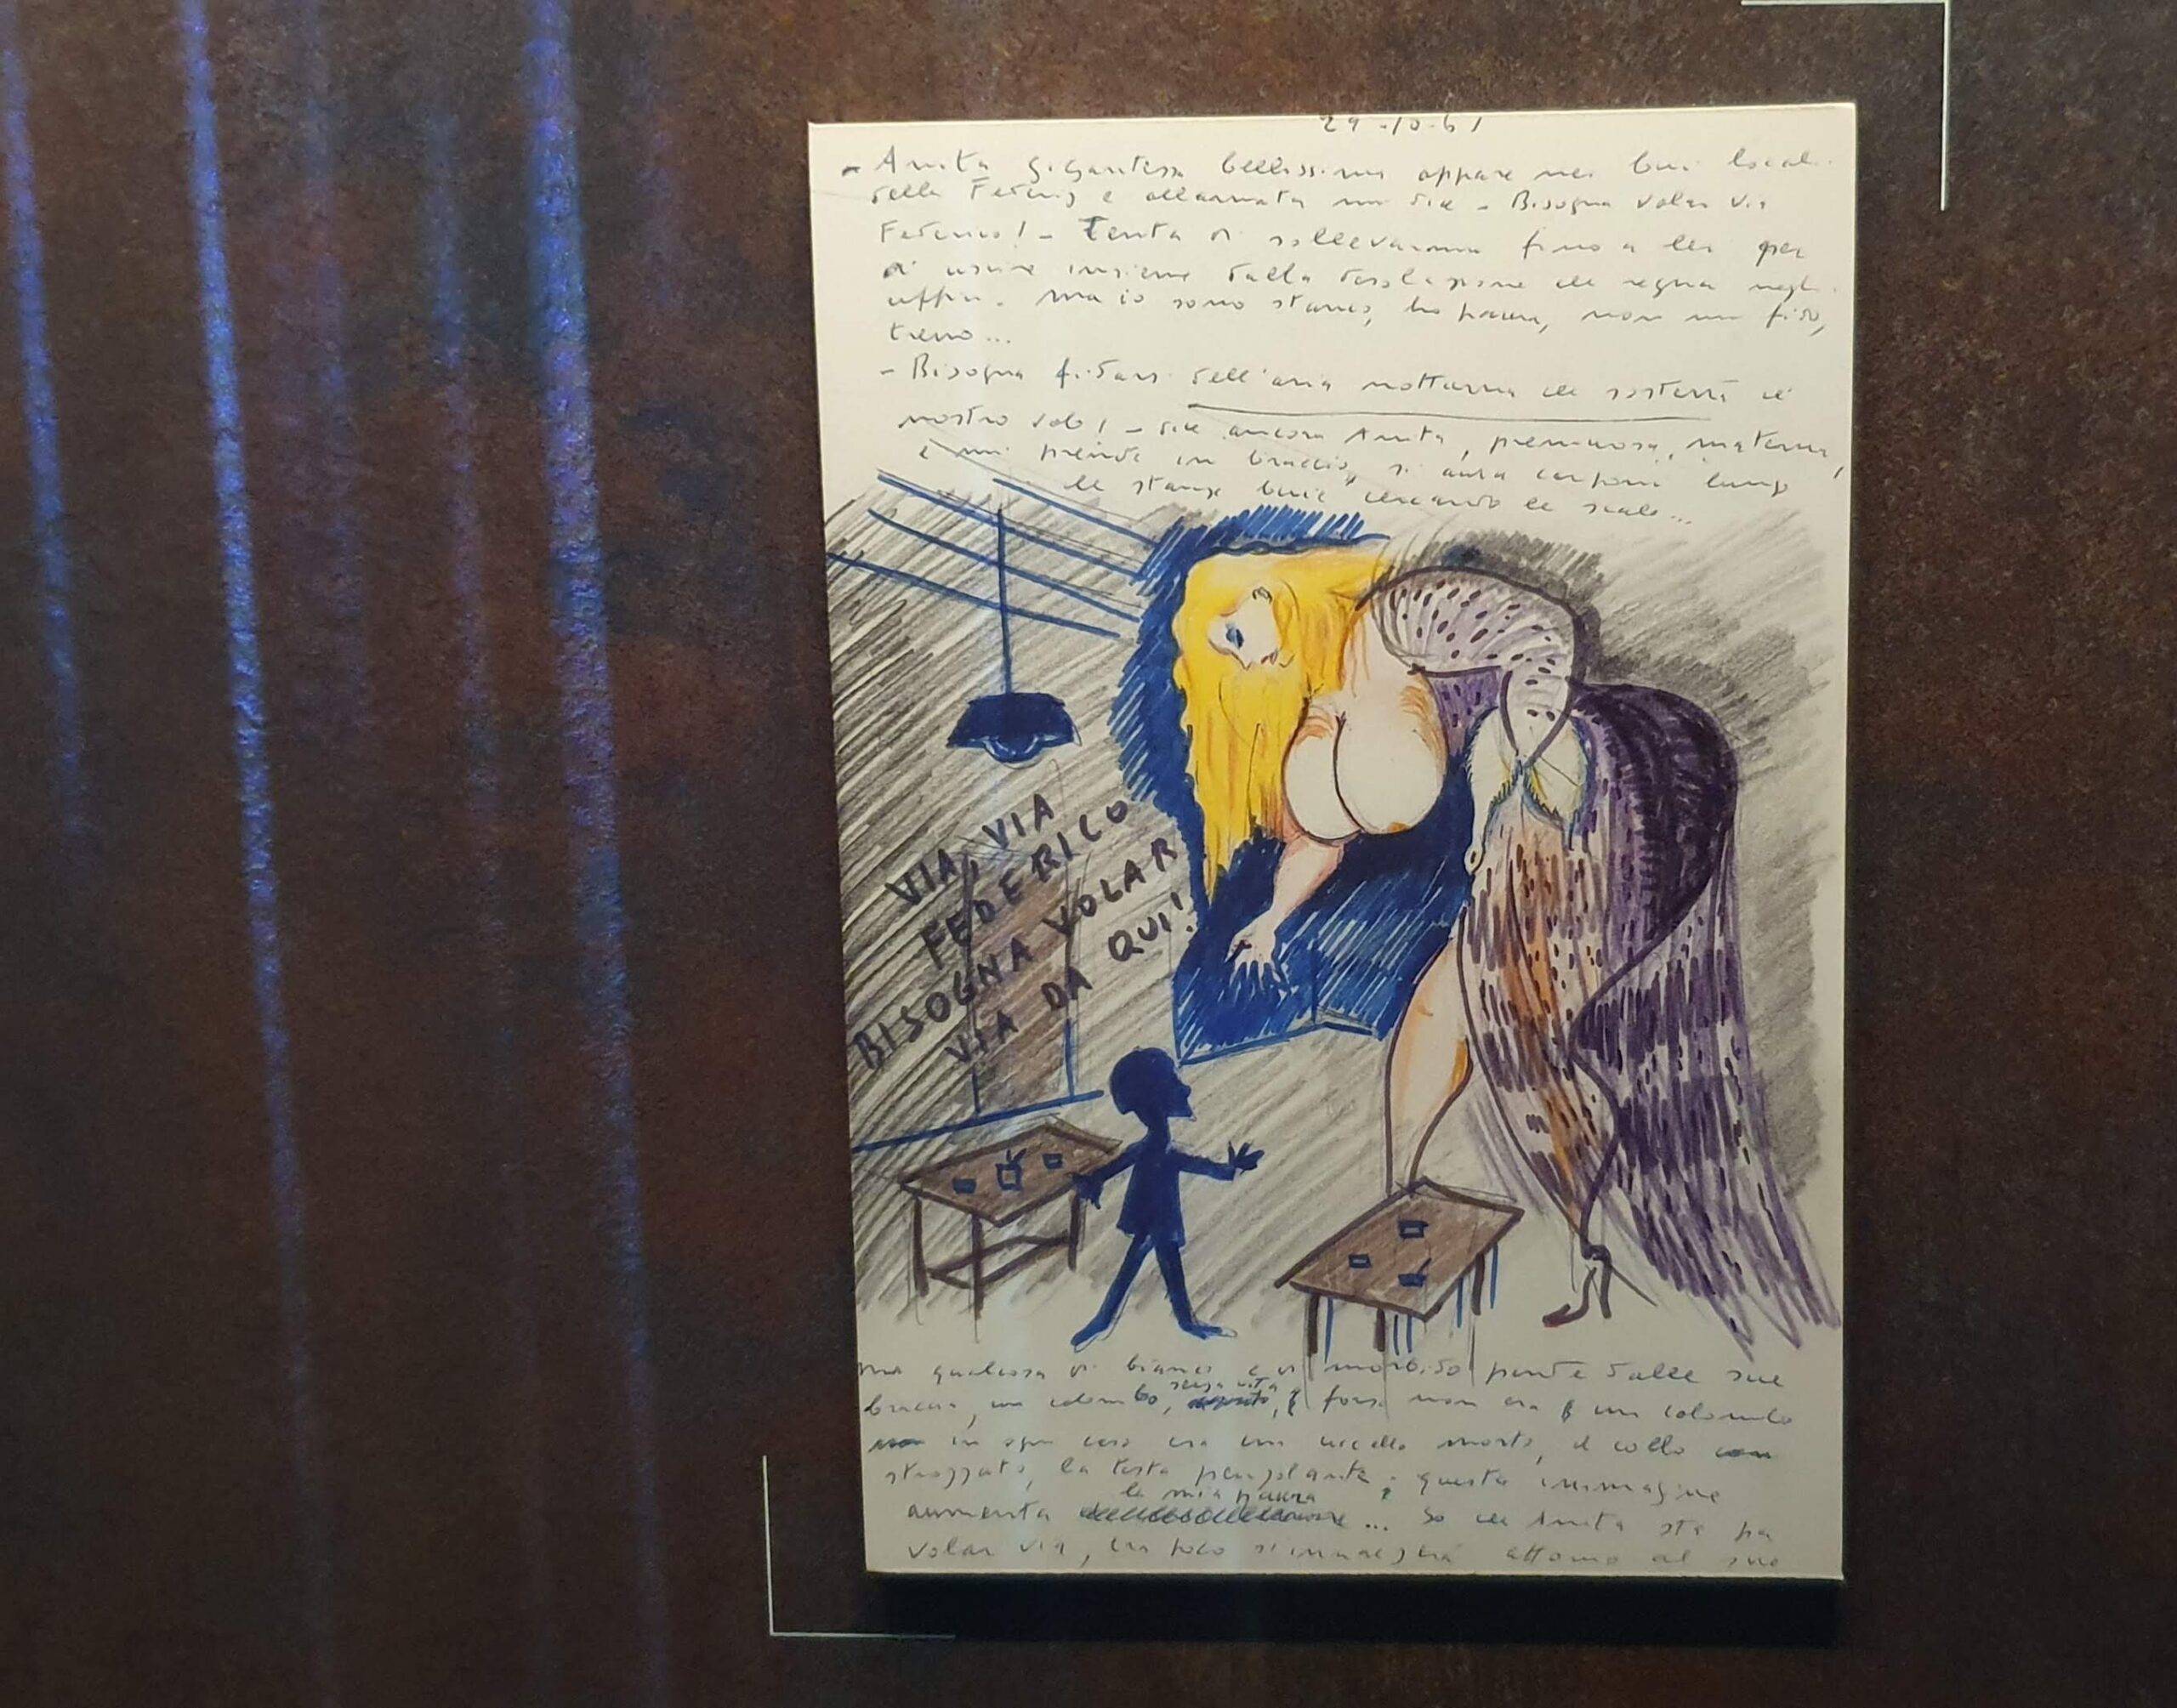 29-10-61
- Anita gigantessa bellissima appare nei bui locali
della Federiz e allarmata mi dice - Bisogna volar via
Federico! - Tenta di sollevarmi fino a lei per
di uscire insieme dalla desolazione che regna negli
uffici. Ma io sono stanco, ho paura, non mi fido,
tremo...
- Bisogna fidarsi dell'aria notturna che sosterrà il
nostro volo! - dice ancora Anita, premurosa, materna,
e mi prende in braccio, si carponi lungo
le stanze buie cercando le scale...
VIA, VIA
FEDERICO
BISOGNA VOLAR
VIA DA QUI!
Ma qualcosa di bianco e di morbido pende dalle sue
braccia, un colombo, senza vita, forse non era un colombo
in ogni caso era un uccello morto, il collo
strozzato, la testa penzolante; questa immagine
aumenta la mia paura... So che Anita sta per
volar via, tra poco attorno al suo